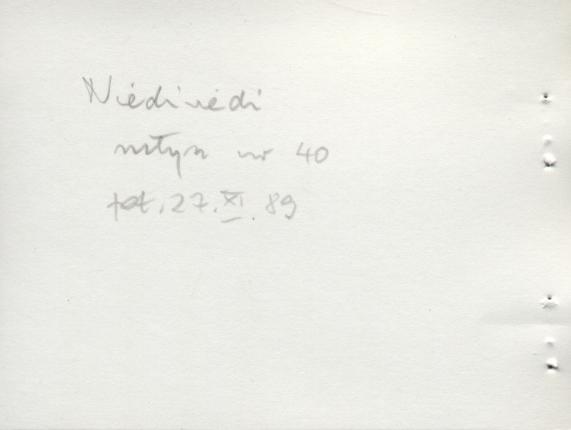 Niedźwiedź
młyn nr 40
fot. 27.XI.89